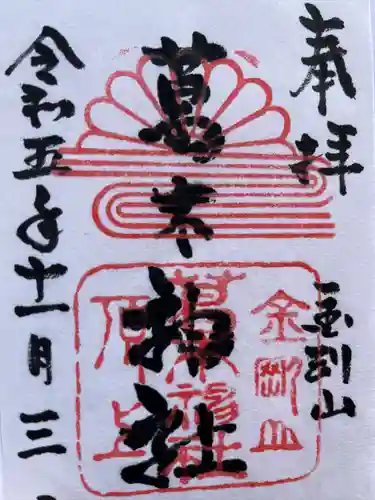 奉拝
金剛山
葛木神社
令和五年十一月三
金剛山
葛木神社